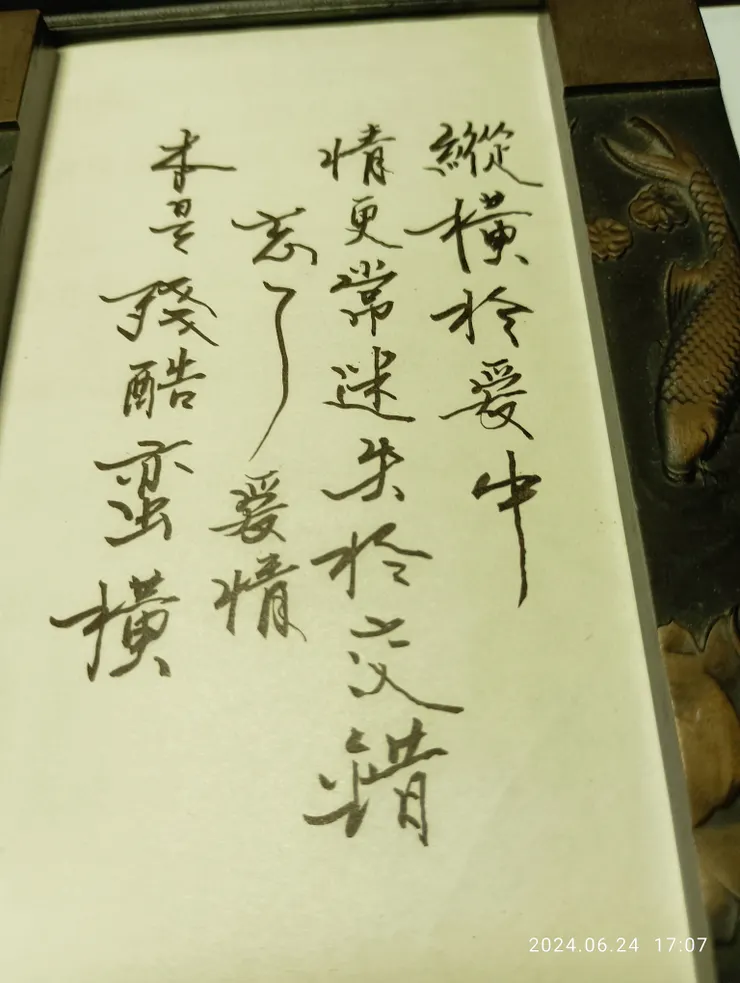 縱橫於爱中
情更常迷失於交錯
忘了爱情
本是殘酷蛮橫
2024.06.24 17:07